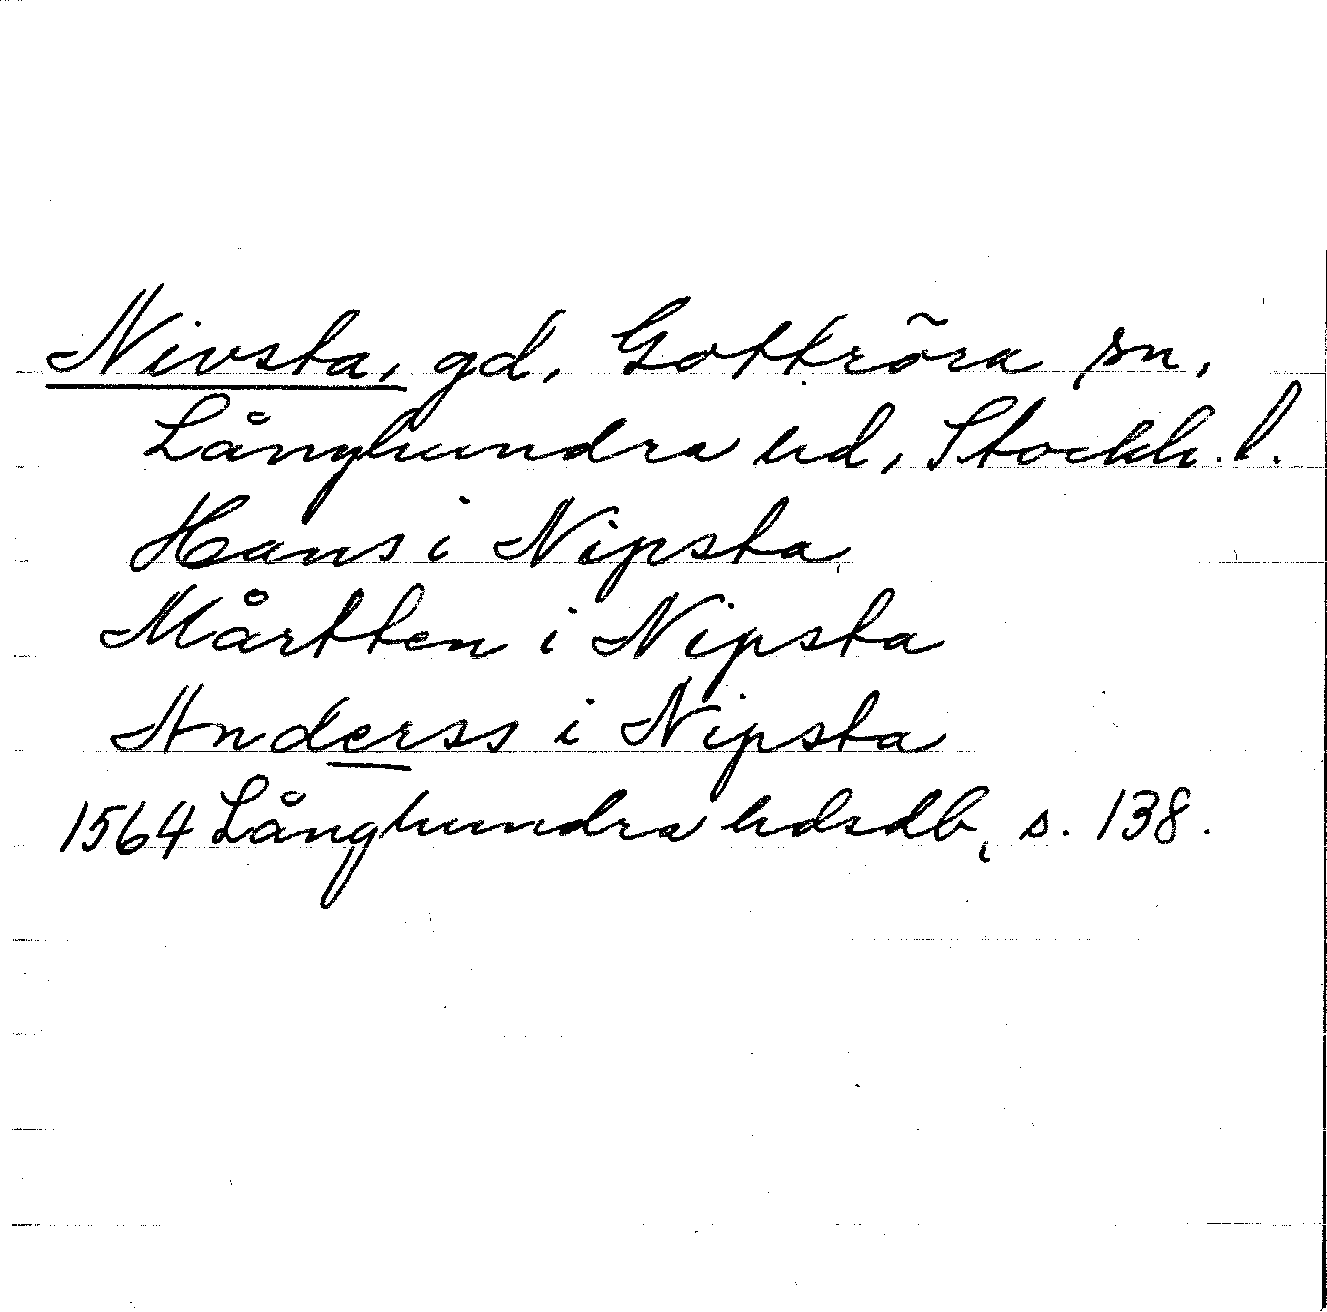 Nivsta, gd, Gottröra sn,
Långhundra hd, Stockh. l.
Hans i Nipsta,
Mårtten i Nipsta
Anderss i Nipsta
1564 Långhundra hdsdb, s. 138.